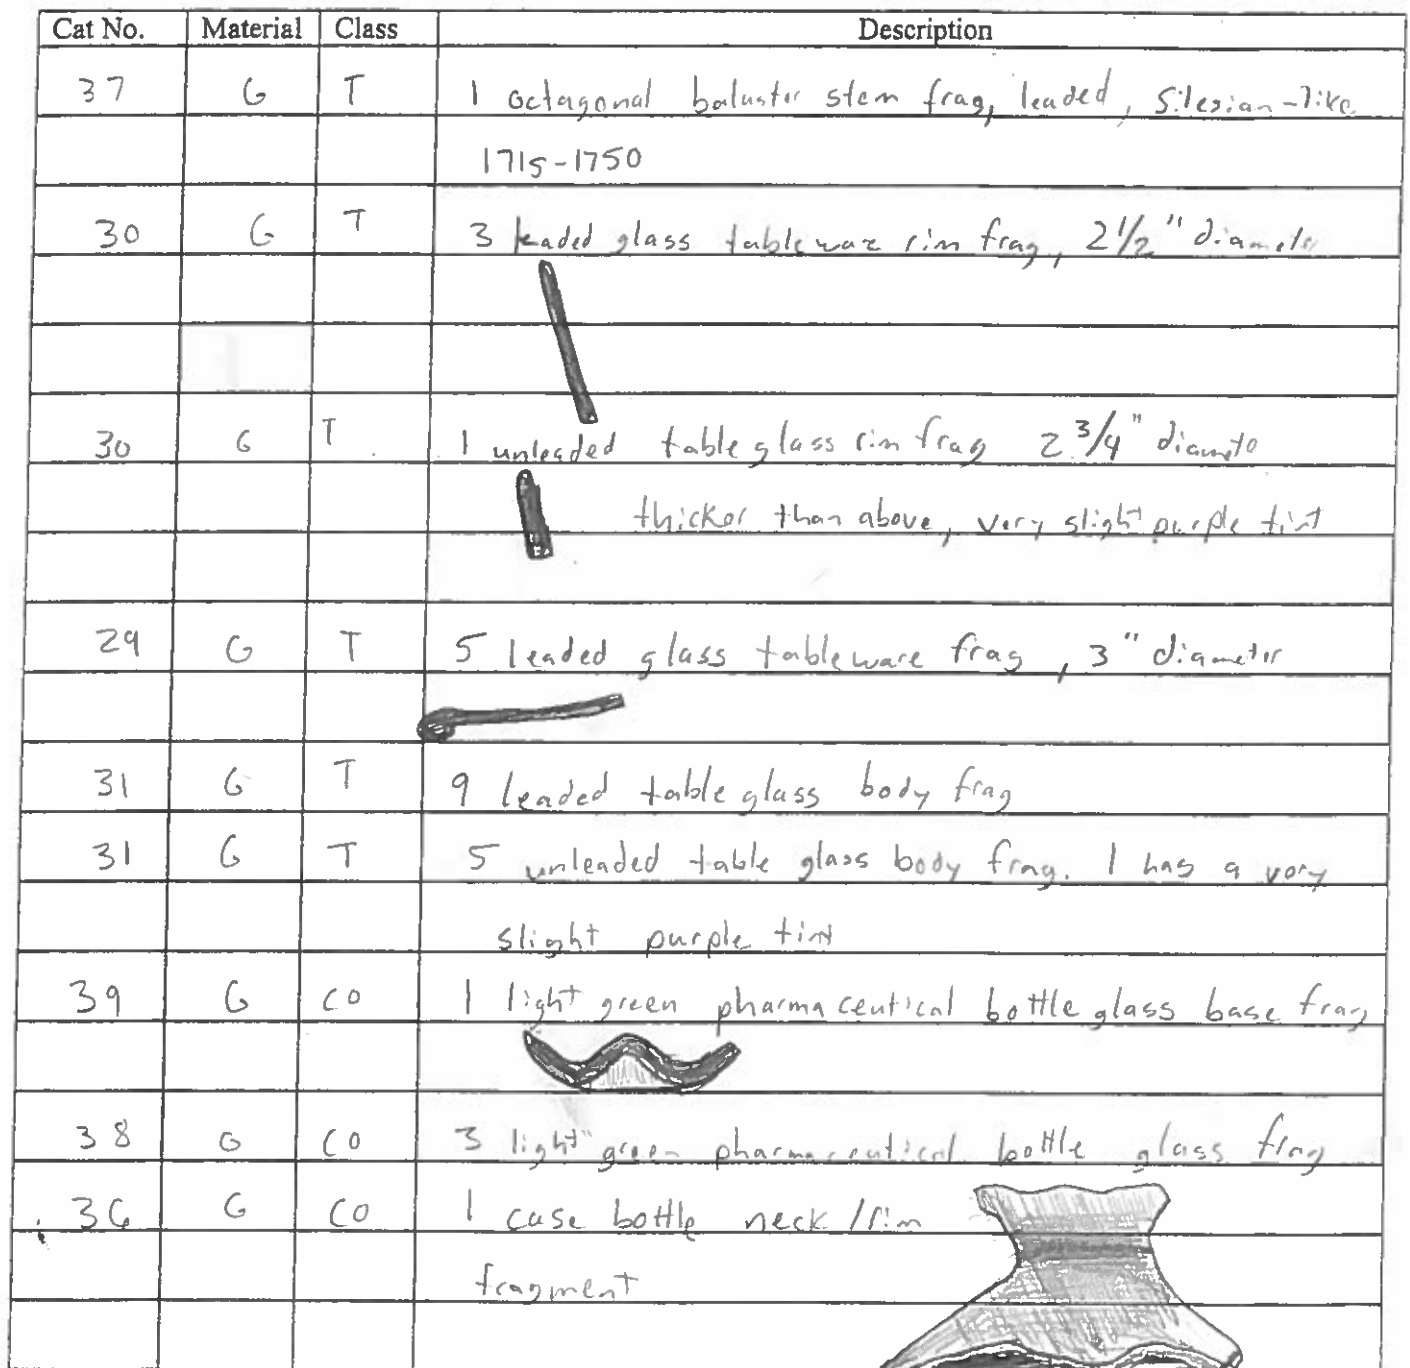 Cat No. Material Class Description
37 G T 1 octagonal baluster stem frag, leaded, Silesian-like
1715-1750
30 G T 3 leaded glass tableware rim frag, 2 1/2" diameter
30 G T 1 unleaded table glass rim frag 2 3/4" diamete
thicker than above, very slight purple tint
29 G T 5 leaded glass tableware frag, 3" diameter
31 G T 9 leaded table glass body frag
31 G T 5 unleaded table glass body frag. 1 has a very
slight purple tint
39 G CO 1 light green pharmaceutical bottle glass base frag
38 G CO 3 light green pharmaceutical bottle glass frag
36 G CO 1 case bottle neck/rim
fragment